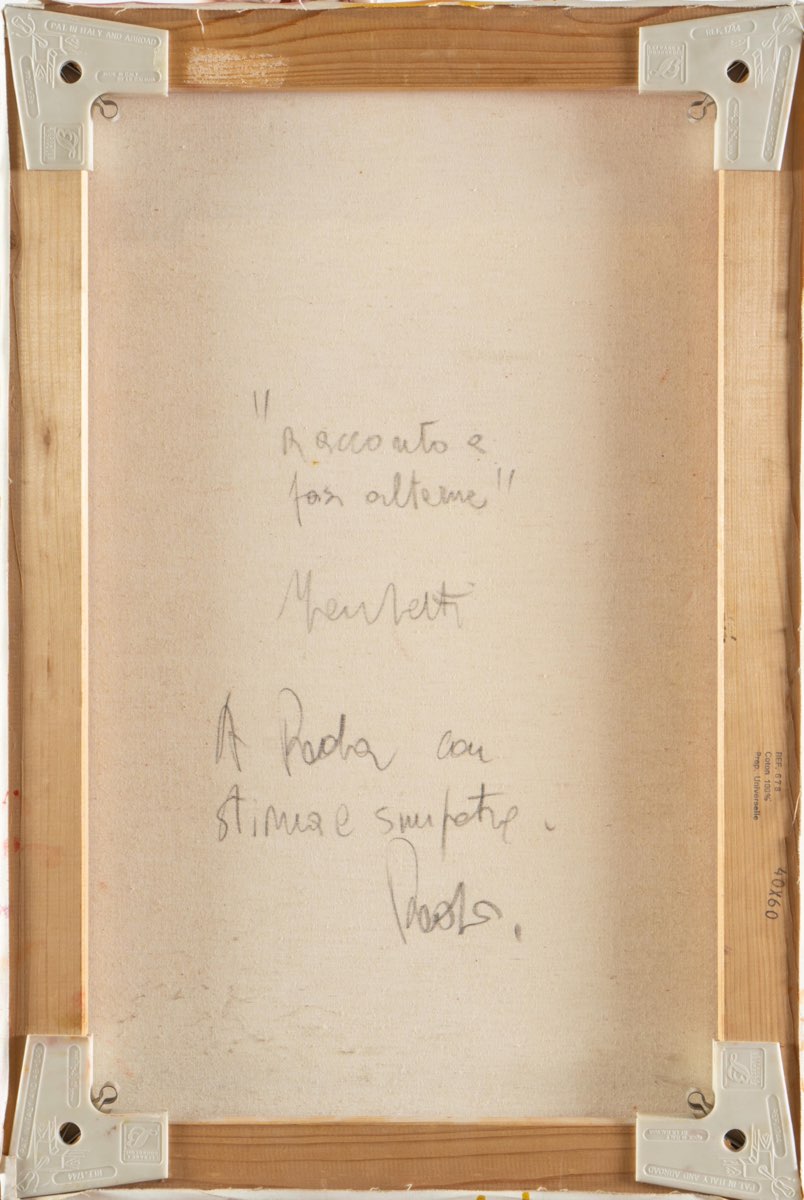 PAT. IN ITALY AND ABROAD
RIF. 1744
"Racconto a
fasi alterne"
A Paola con
stima e simpatia.
Paolo.
REF. 678
Coton 100%
Prep. Universelle
40X60
RIF. 1744
PAT. IN ITALY AND ABROAD